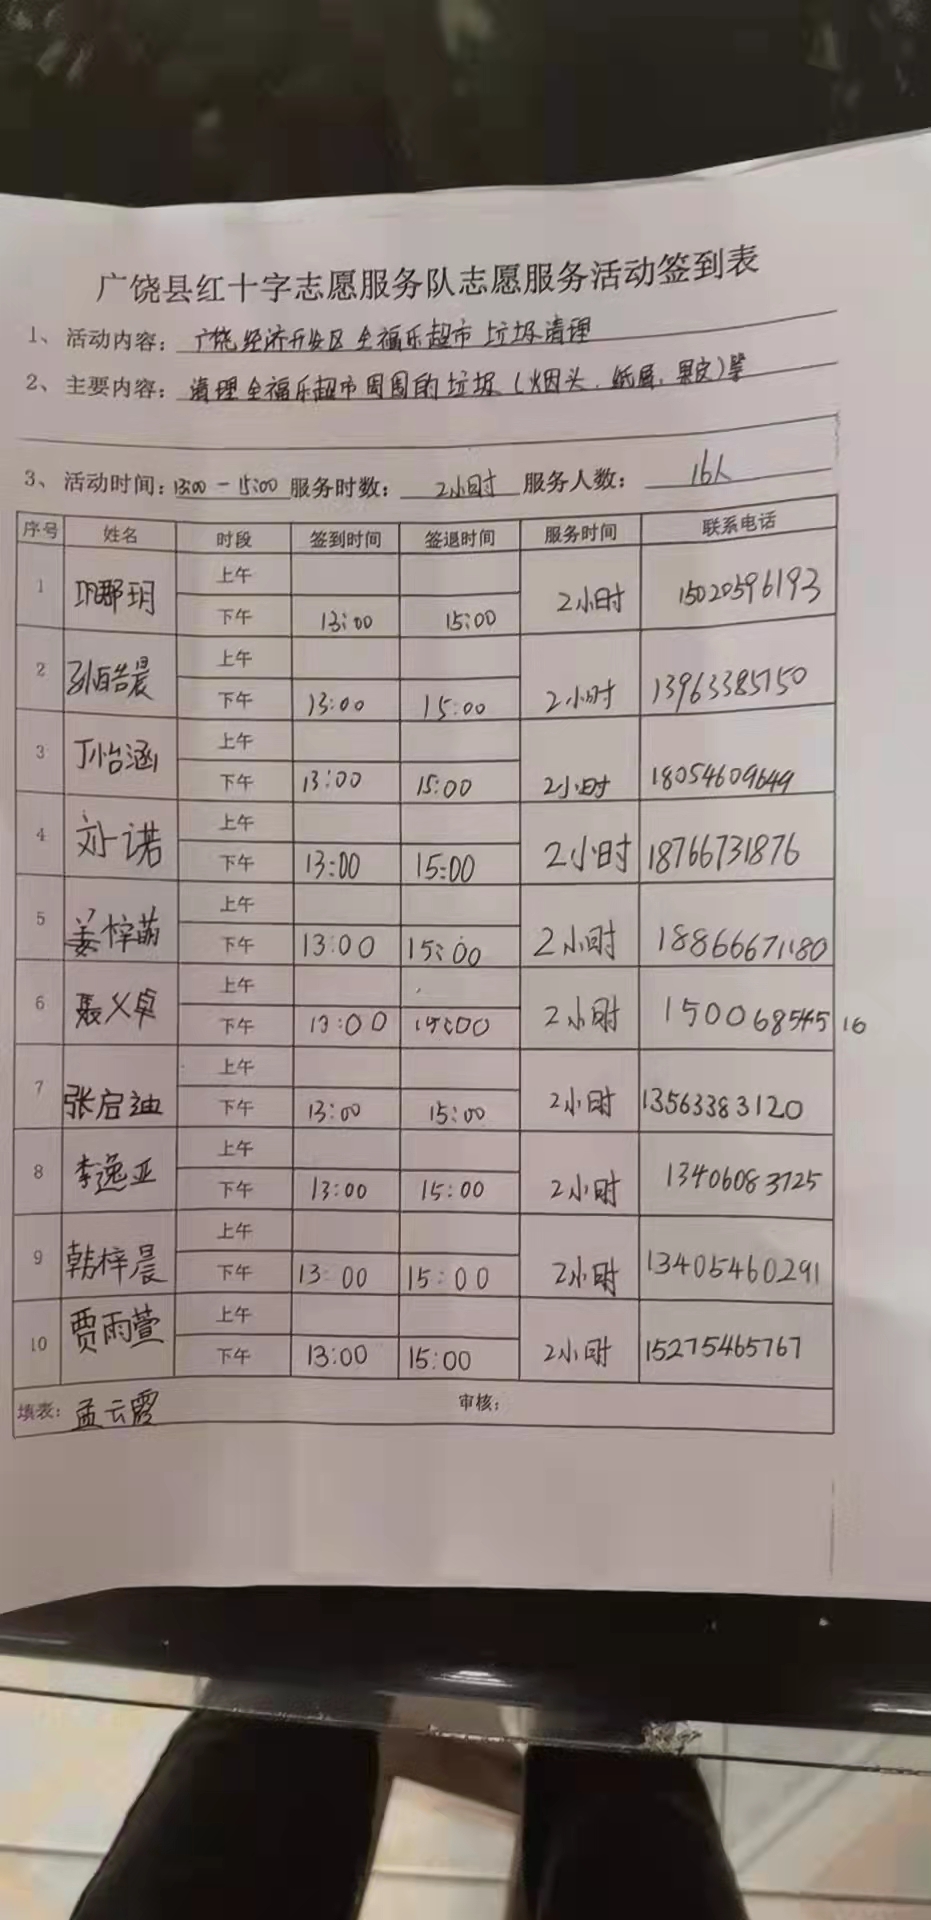 广饶县红十字志愿服务队志愿服务活动签到表
1、活动内容：广饶经济开发区全福乐超市垃圾清理
2、主要内容：清理全福乐超市周围的垃圾（烟头、纸屑、果皮）等
3、活动时间：13:00-15:00 服务时数：2小时 服务人数：16人
序号 姓名 时段 签到时间 签退时间 服务时间 联系电话
上午
1 郡玥 2小时 15020596193
下午 13:00 15:00
上午
2 孙皓晨 2小时 13963385750
下午 13:00 15:00
上午
3 丁怡涵 2小时 18054609649
下午 13:00 15:00
上午
4 刘诺 2小时 18766731876
下午 13:00 15:00
上午
5 姜梓萌 2小时 18866671180
下午 13:00 15:00
上午
6 聂义卓 2小时 15006854516
下午 13:00 15:00
上午
7 张启迪 2小时 13563383120
下午 13:00 15:00
上午
8 李逸亚 2小时 13406083725
下午 13:00 15:00
上午
9 韩梓晨 2小时 13405460291
下午 13:00 15:00
上午
10 贾雨萱 2小时 15275465767
下午 13:00 15:00
填表：孟云霞 审核：